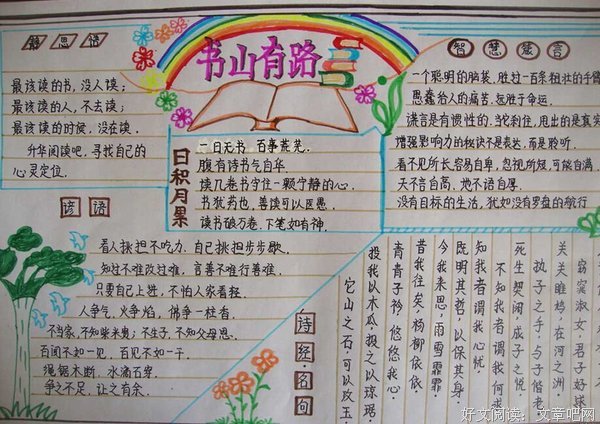 书山有路
静思语
最该读的书，没人读；
最该读的人，不去读；
最该读的时候，没在读．
升华阅读吧，寻找自己的
心灵定位．
日积月累
一日无书 百事荒芜．
腹有诗书气自华
读几卷书守住一颗宁静的心．
书犹药也，善读可以医愚．
读书破万卷，下笔如有神．
智慧箴言
一个聪明的脑袋，胜过一百条粗壮的手臂
愚蠢给人的痛苦，远胜于命运．
谎言是有惯性的，当它刹住，甩出的是真实
增强影响力的秘诀不是表达，而是聆听．
看不见所长，容易自卑，忽视所短，可能自满．
天不言自高，地不语自厚．
没有目标的生活，犹如没有罗盘的航行
谚语
看人挑担不吃力，自己挑担步步歇．
知过不难改过难，言善不难行善难．
只要自己上进，不怕人家看轻．
人争气，火争焰，佛争一柱香．
不当家，不知柴米贵；不生子，不知父母恩．
百闻不如一见，百见不如一干．
绳锯木断，水滴石穿．
争之不足，让之有余．
诗经·名句
窈窕淑女，君子好逑
关关雎鸠，在河之洲．
执子之手，与子偕老．
死生契阔，成子之悦．
不知我者，谓我何求
知我者谓我心忧
既明其哲，以保其身．
今我来思，雨雪霏霏
昔我往矣，杨柳依依
青青子衿，悠悠我心．
投我以木瓜，投之以琼琚．
它山之石，可以攻玉．
好文阅读：文章吧网